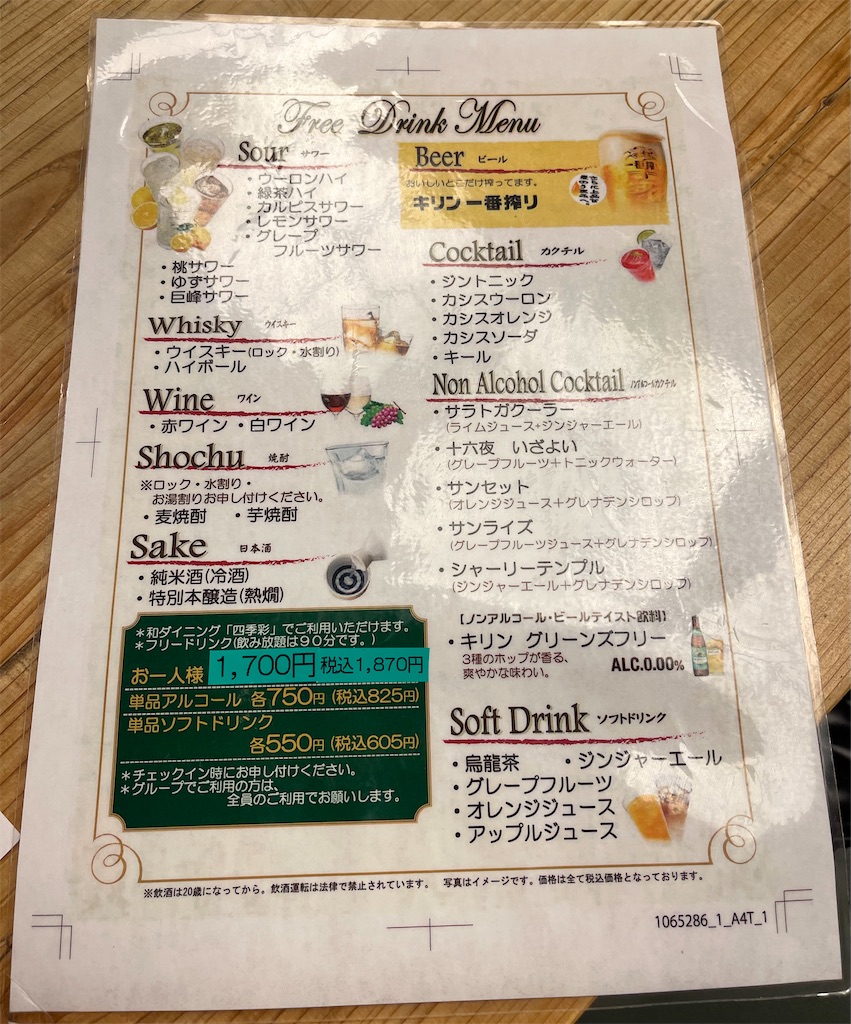 Free Drink Menu
Sour サワー
・ウーロンハイ
・緑茶ハイ
・カルピスサワー
・レモンサワー
・グレープ
フルーツサワー
・桃サワー
・ゆずサワー
・巨峰サワー
Whisky ウイスキー
・ウイスキー(ロック・水割り)
・ハイボール
Wine ワイン
・赤ワイン ・白ワイン
Shochu 焼酎
※ロック・水割り・
お湯割りお申し付けください。
・麦焼酎 ・芋焼酎
Sake 日本酒
・純米酒(冷酒)
・特別本醸造(熱燗)
＊和ダイニング「四季彩」でご利用いただけます。
＊フリードリンク(飲み放題は９０分です。)
お一人様 1,700円 税込1,870円
単品アルコール 各750円 (税込825円)
単品ソフトドリンク
各550円 (税込605円)
＊チェックイン時にお申し付けください。
＊グループでご利用の方は、
全員のご利用でお願いします。
Beer ビール
おいしいとこだけ搾ってます。
キリン一番搾り
Cocktail カクテル
・ジントニック
・カシスウーロン
・カシスオレンジ
・カシスソーダ
・キール
Non Alcohol Cocktail ノンアルコールカクテル
・サラトガクーラー
(ライムジュース+ジンジャーエール)
・十六夜 いざよい
(グレープフルーツ＋トニックウォーター)
・サンセット
(オレンジジュース＋グレナデンシロップ)
・サンライズ
(グレープフルーツジュース＋グレナデンシロップ)
・シャーリーテンプル
(ジンジャーエール＋グレナデンシロップ)
【ノンアルコール・ビールテイスト飲料】
・キリン グリーンズフリー
3種のホップが香る、
爽やかな味わい。
ALC.0.00%
Soft Drink ソフトドリンク
・烏龍茶 ・ジンジャーエール
・グレープフルーツ
・オレンジジュース
・アップルジュース
※飲酒は20歳になってから。飲酒運転は法律で禁止されています。 写真はイメージです。価格は全て税込価格となっております。
1065286_1_A4T_1